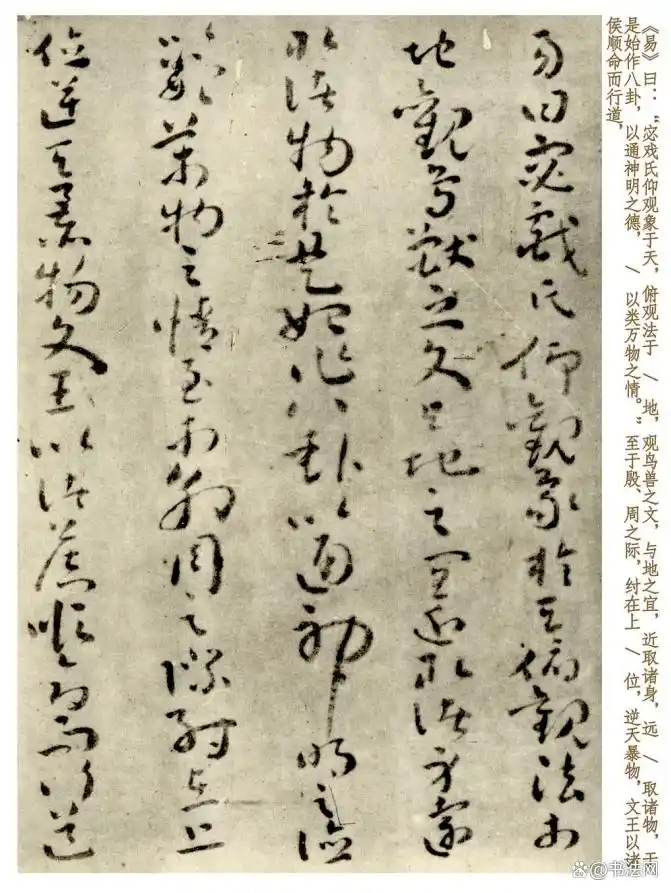 《易》曰:“宓戏氏仰观象于天,俯观法于 \ 地,观鸟兽之文,与地之宜,近取诸身,远 \ 取诸物,于
是始作八卦,以通神明之德, \ 以类万物之情。”至于殷、周之际,纣在上 \ 位,逆天暴物,文王以诸
侯顺命而行道,
易曰宓戲氏仰觀象於天俯觀法於
地觀鳥獸之文与地之宜近取諸身遠
取諸物於是始作八卦以通神明之德
類萬物之情至於殷周之際紂在上
位逆天暴物文王以諸侯順命而行道
@书法网